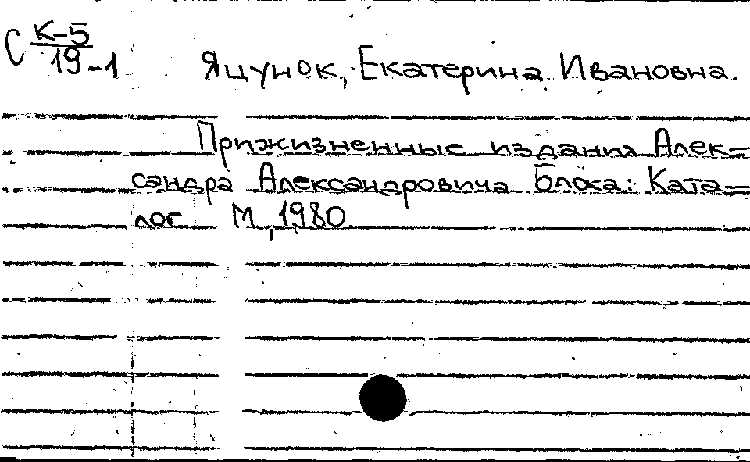 С К-5
19-1
Яцунок, Екатерина Ивановна.
Прижизненные издания Алек=
сандра Александровича Блока: Ката=
лог М, 1980